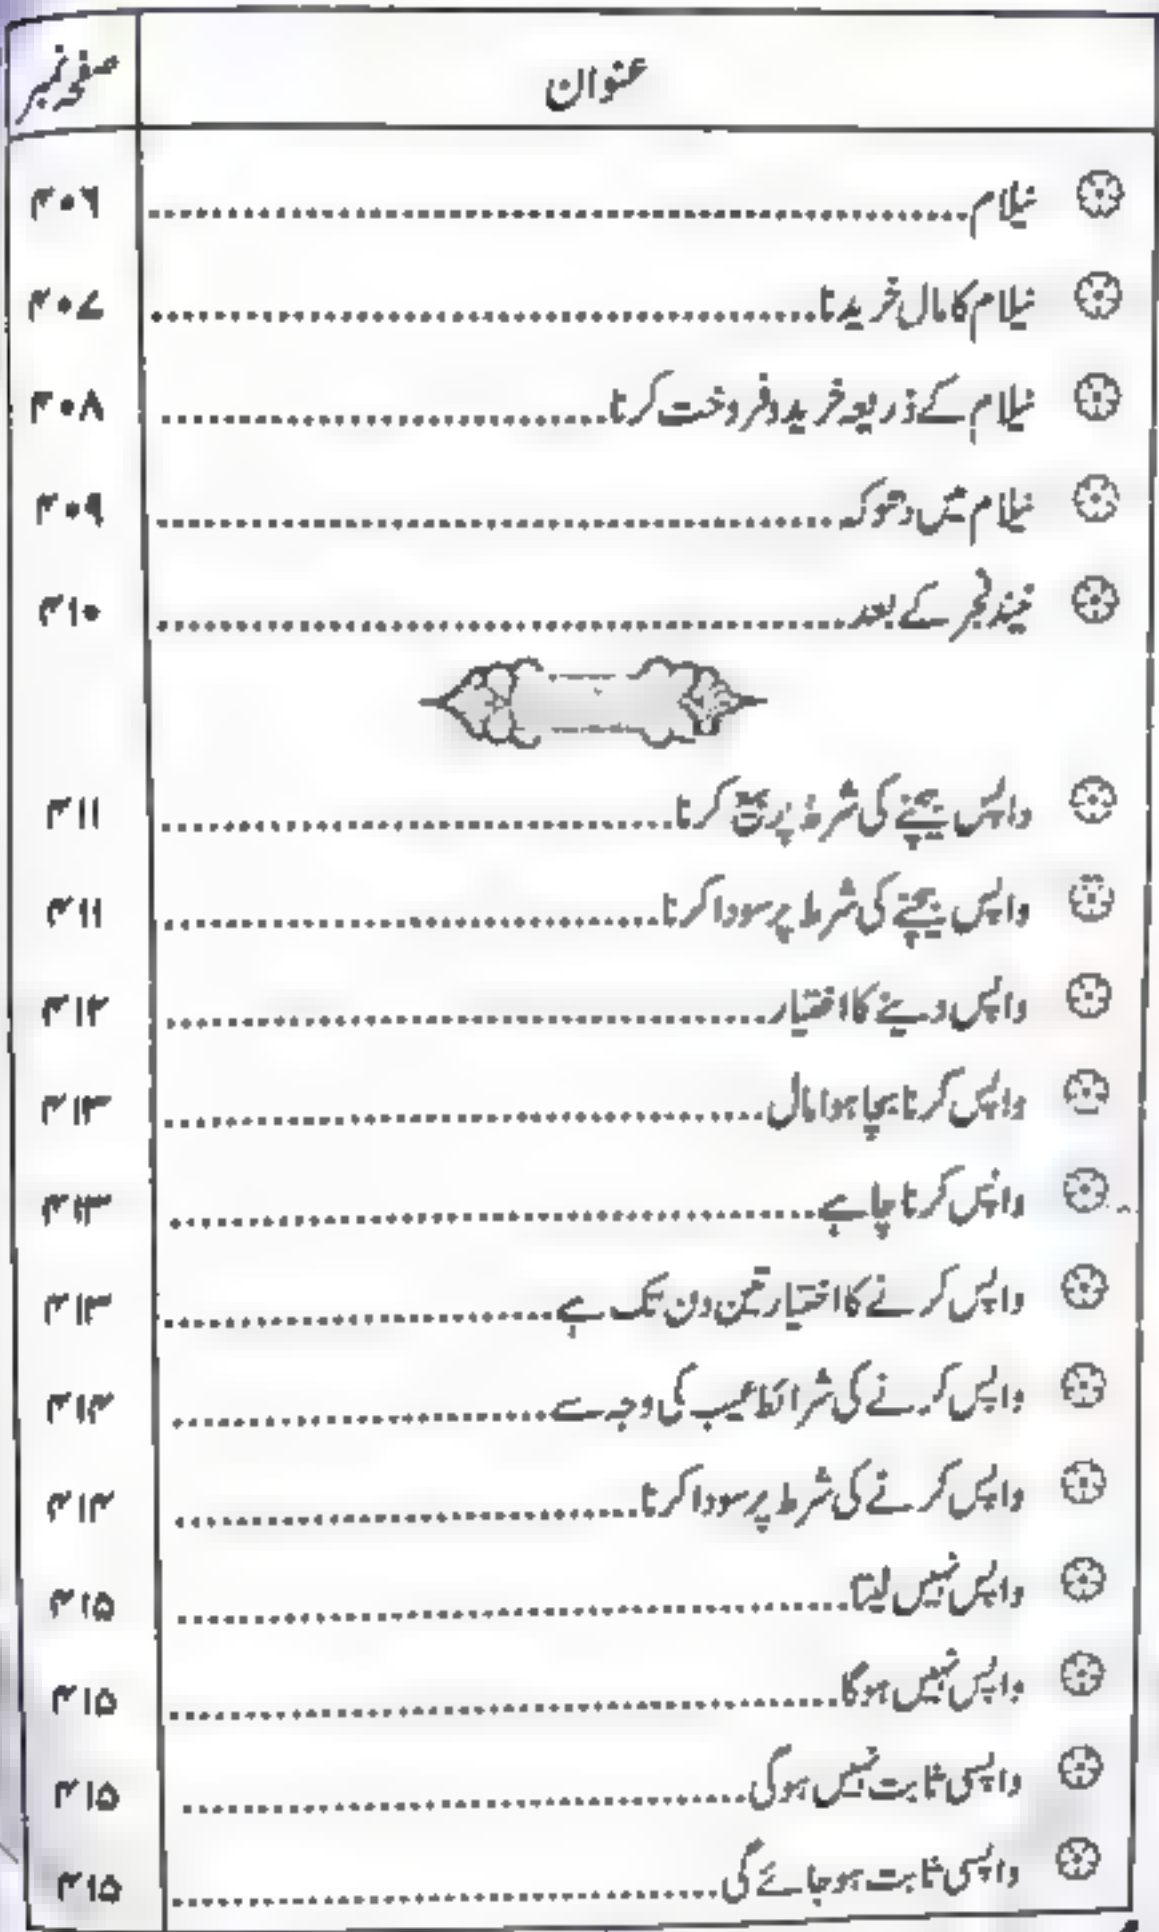 عنوان صفحہ نمبر
نیلام ۴۰۶
نیلام کا مال خریدنا ۴۰۷
نیلام کے ذریعہ خرید و فروخت کرنا ۴۰۸
نیلام میں دھوکہ ۴۰۹
نیند فجر کے بعد ۴۱۰
واپس بیچنے کی شرط پر بیع کرنا ۴۱۱
واپس بیچنے کی شرط پر سودا کرنا ۴۱۱
واپس دینے کا اختیار ۴۱۲
واپس کرنا بیچا ہوا مال ۴۱۳
واپس کرنا چاہے ۴۱۳
واپس کرنے کا اختیار تین دن تک ہے ۴۱۳
واپس کرنے کی شرائط عیب کی وجہ سے ۴۱۴
واپس کرنے کی شرط پر سودا کرنا ۴۱۴
واپس نہیں لیتا ۴۱۵
واپس نہیں ہوگا ۴۱۵
واپسی ثابت نہیں ہوگی ۴۱۵
واپسی ثابت ہوجائے گی ۴۱۵